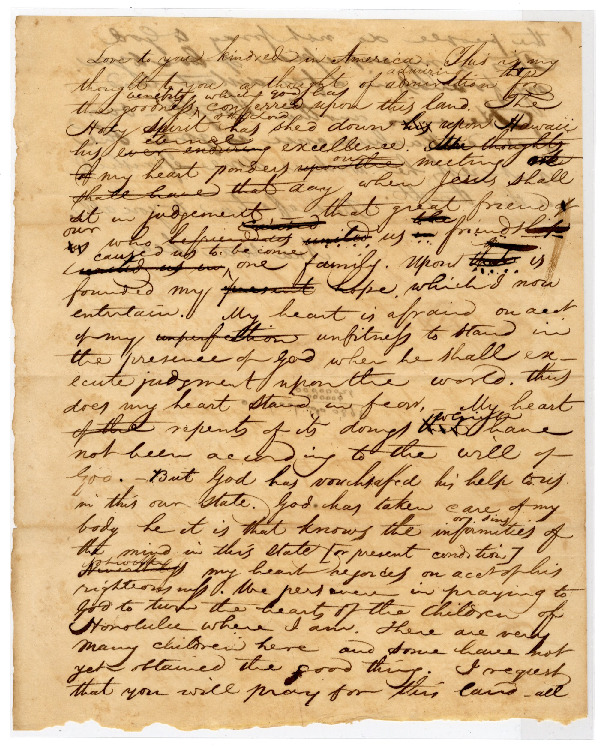 Love to you kindred in America. This is my
thought to you a thought of admiration
the goodness benefits which God has conferred upon this land. The
Holy Spirit has shed down upon Hawaii
his ever enduring eternal excellence. The thoughts
of my heart ponders upon the on meeting
shall have that day, when Jesus shall
sit in judgement that great friend of
our who befriended united us friends
united us in caused us to become one family. Upon is
founded my present hope, which I now
entertain. My heart is afraid on acct
of my imperfection unfitness to stand in
the presence of God when he shall ex-
ecute judgment upon the world. thus
does my heart stand in fear, My heart
of the repents of its doings which have
not been according to the will of
God. - But God has vouchsafed his help to us
in this our state. God has taken care of my
body he it is that knows the infirmities or sins of
the mind in this state [or present condition]
my heart rejoices on acct of his
righteousness. We persevere in praying to
God to turn the hearts of the children of
Honolulu where I am. There are very
many children here and some have not
yet obtained the good thing. I request
that you will pray for this land - all